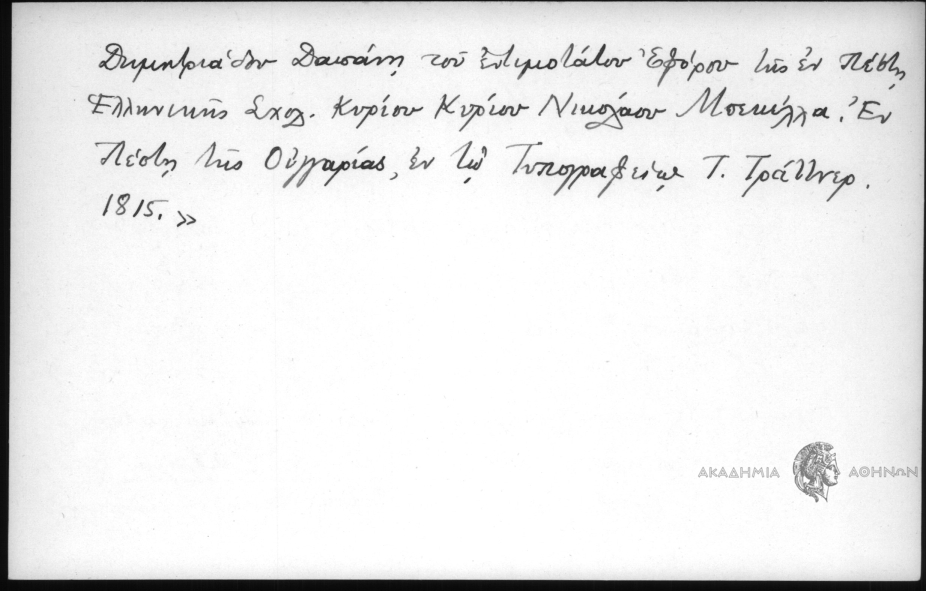 Δημητριάδου Δαπάνῃ τοῦ ἐντιμοτάτου Ἐφόρου τῆς ἐν Πέστῃ
Ἑλληνικῆς Σχολ. Κυρίου Κυρίου Νικολάου Μπεκέλλα. Ἐν
Πέστῃ τῆς Οὐγγαρίας, ἐν τῷ Τυπογραφείῳ Τ. Τράττνερ.
1815.»
ΑΚΑΔΗΜΙΑ ΑΘΗΝΩΝ